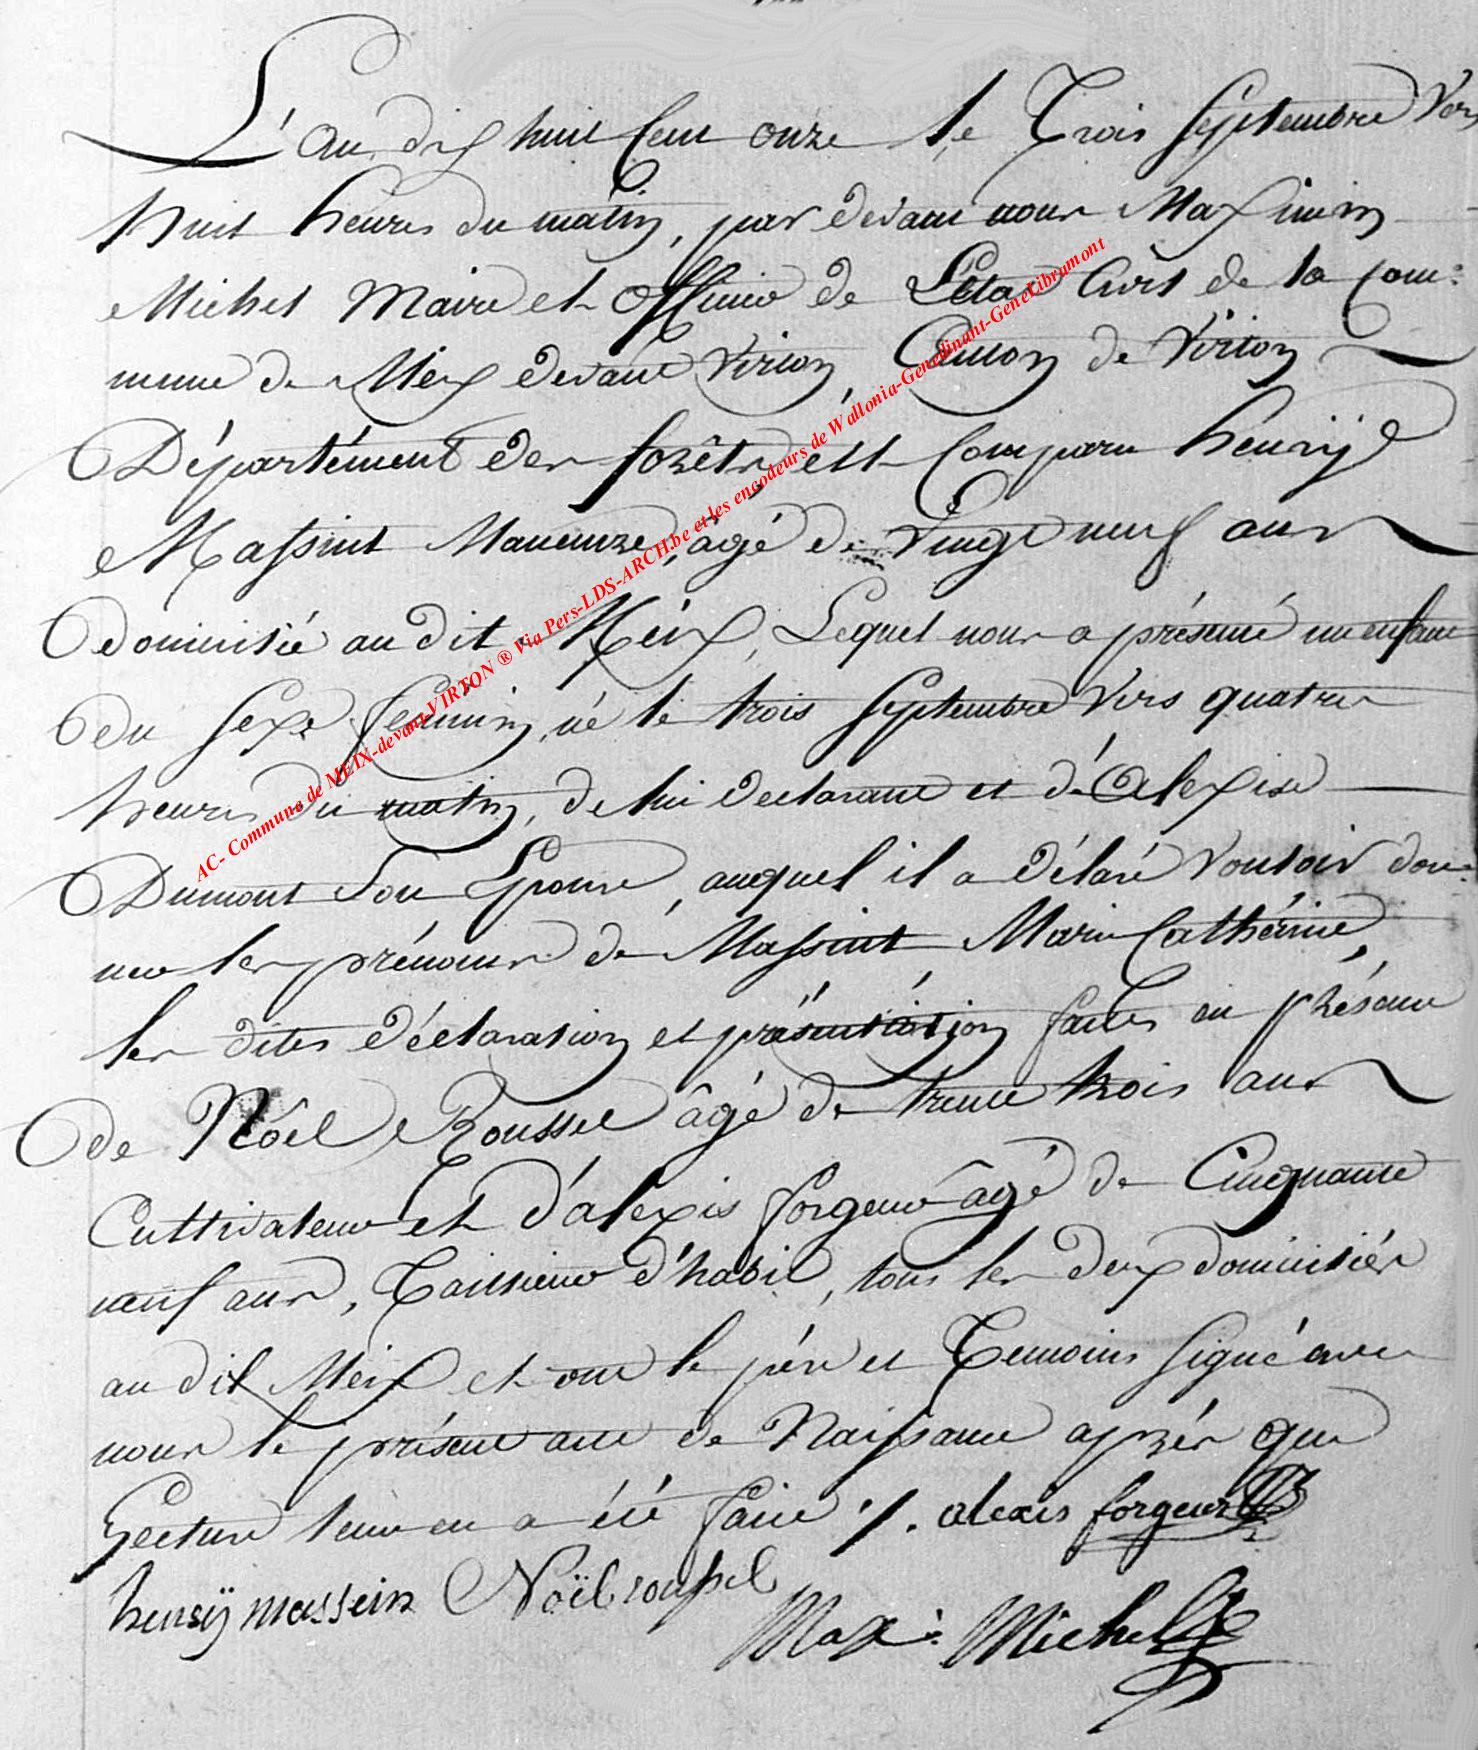 L'an dix huit Cent onze le Trois Septembre vers
huit heures du matin, par devant nous Maximin
Michel Maire et Officier de L'état Civil de la Com-
mune de Meix devant Virton, Canton de Virton
Département des forêts, est Comparu henrij
Massint Maneuvre, âgé de vingt neuf ans
domicilié audit Meix, Lequel nous a présenté un enfant
du Sexe féminin, né le trois Septembre vers quatre
heures du matin, de lui declarant et d'Alexise
Dumont Son Epouse, auquel il a délaré vouloir don-
ner les prénoms de Massint Marie Cathérine,
les dites déclaration et présentation faites en présence
de Noël Roussel âgé de trente trois ans
Cultivateur et d'alexis forgeur âgé de Cinquante
neuf ans, Taillieur d'habit, tous les deux domiciliés
au dit Meix et ont le père et Temoins Signé avec
nous le présent acte de Naissance après que
Lecture leur en a été faite ./. alexis forgeur
henrÿ massein Noël roussel
Max: Michel
AC- Commune de MEIX-devant-VIRTON ® Via Pers-LDS-ARCH.be et les encodeurs de Wallonia-Genedinant-GeneLibramont